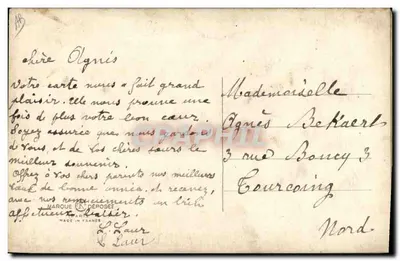 chère Agnès
Votre carte nous a fait grand
plaisir. Elle nous prouve une
fois de plus votre bon cœur.
Soyez assurée que nous gardons
de vous, et de vos chères sœurs le
meilleur souvenir.
Offrez à vos chers parents nos meilleurs
vœux de bonne année, et recevez,
avec nos remerciements un très
affectueux baiser.
MARQUE DÉPOSÉE
MADE IN FRANCE
Mademoiselle
Agnès Bekaert
3 rue Boucy 3
Tourcoing
Nord